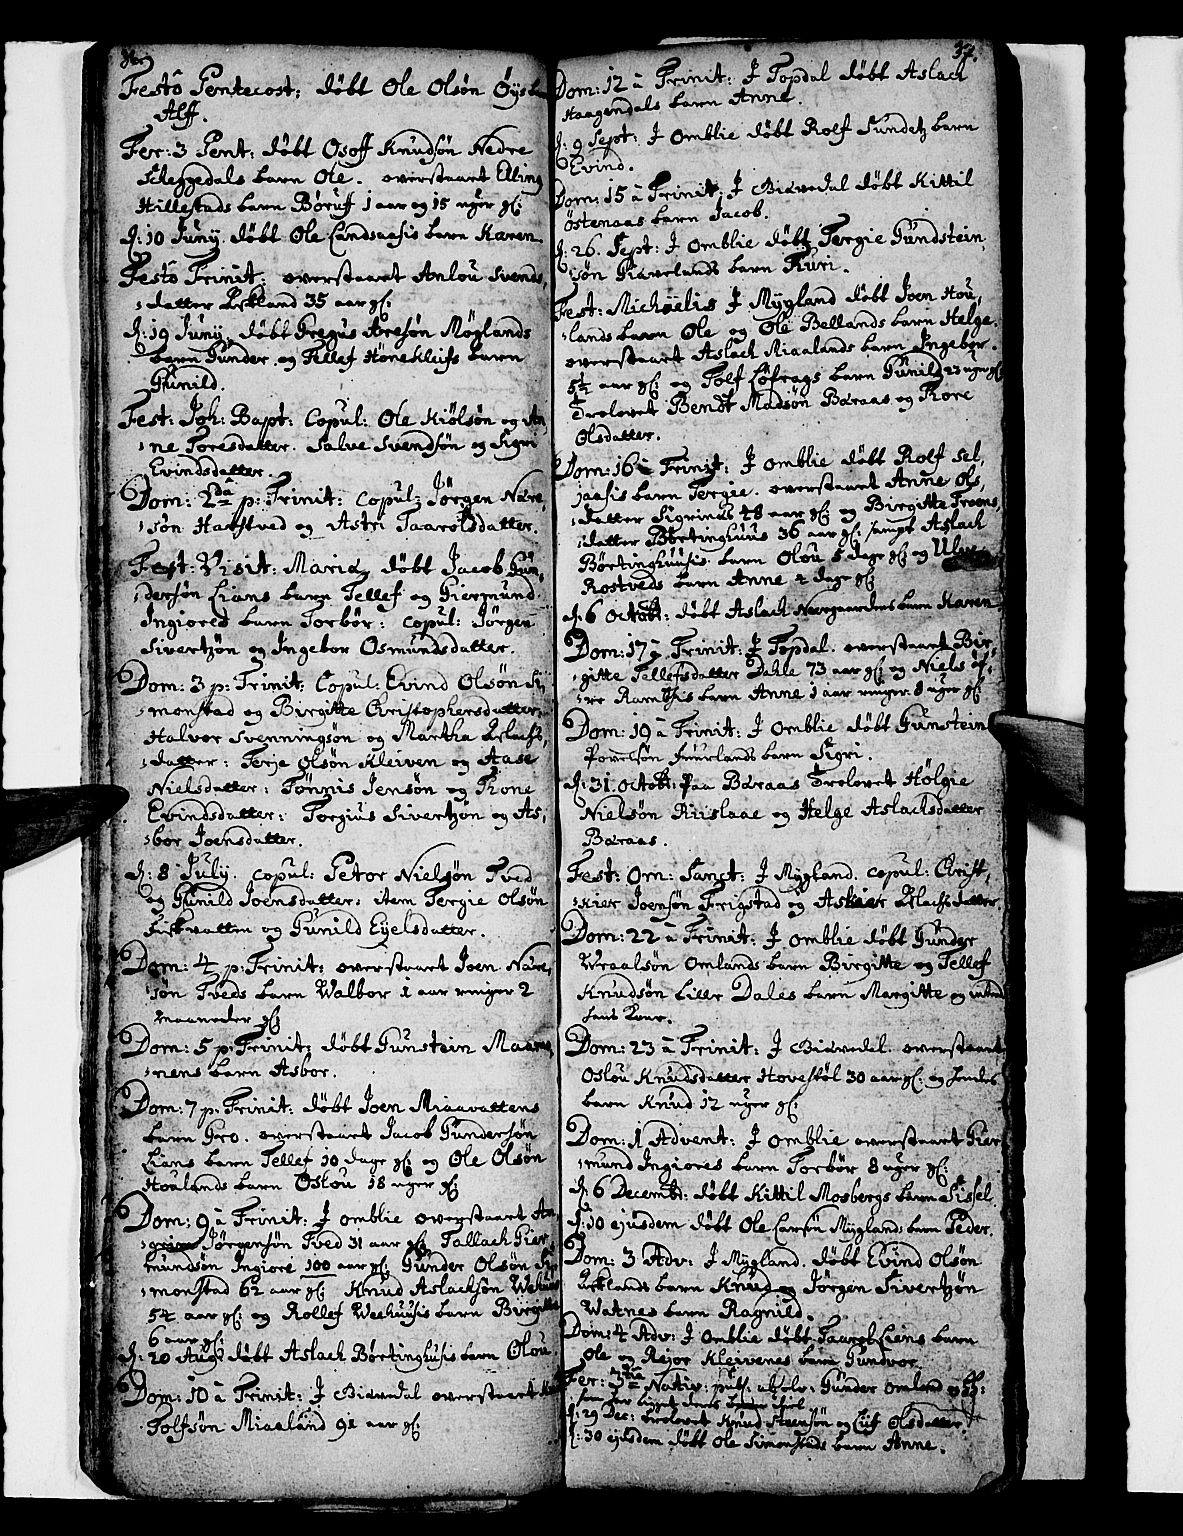 36.
Festô Pentecost: døbt Ole Olsøn Øysbu
Alff.
Fer: 3 Pent: døbt Osoff Knudsøn Nedre
Skeggedals barn Ole. overstaaet Elling
Hillestads barn Børuf 1 aar og 15 uger gl:
d: 10 Juny. døbt Ole Landsaasis barn Karen.
Festô Trinit: overstaaet Anlou Svends
datter Eckland 35 aar gl:
d: 19 Juny. døbt Gregus Aresøn Møglands
barn Gunder. og Tellef Hønekleifs barn
Gunild.
Fest: Joh: Bapt: Copul: Ole Kiølsøn og An
ne Toresdatter. Salve Svendsøn og Sigri
Evindsdatter.
Dom: 2da p: Trinit: Copul: Jørgen Nære
søn Harstved og Astri Taaroldsdatter.
Fest: Visit: Mariæ døbt Jacob Gun
dersøn Lians barn Tellef og Giermund
Ingiored barn Torbør: Copul: Jørgen
Sivertzøn og Ingebor Osmundsdatter.
Dom: 3 p: Trinit: Copul: Evind Olsøn Si
monstad og Birgitte Christophersdatter.
Halvor Svenningsøn og Martha Aslachs
datter: Terje Olsøn Kleiven og Aase
Nielsdatter: Tønnis Jensøn og Tone
Evindsdatter: Torgius Sivertzøn og As
bor Joensdatter.
d: 8 July. copul: Petor Nielsøn Tved
og Gunild Joensdatter. item Tergie Olsøn
Fiskvatten og Gunild Eyelsdatter.
Dom: 4 p: Trinit: overstaaet Joen Nære
søn Tveds barn Walbor 1 aar ringer 2
maaneder gl:
Dom: 5 p: Trinit: døbt Gunstein Maa
nens barn Asbor.
Dom: 7 p: Trinit: døbt Joen Miaavattens
barn Gro. overstaaet Jacob Gundersøn
Lians barn Tellef 10 dage gl: og Ole Olsøn
Houlands barn Oslou 18 uger gl:
Dom: 9 â Trinit: J omblie overstaaet An
Jørgensøn Tved 31 aar gl: Tallach Gier
mundsøn Ingiore 100 aar gl: Gunder Olsøn Si
monstad 62 aar gl: Knud Aslacksøn
54 aar gl: og Rollef Weehuusis barn Birgitte
6 aar gl:
d: 20 Aug: døbt Aslach Børtinghusis barn Olou
Dom: 10 â Trinit: J Giævedal overstaaet
Tolfsøn Miaaland 91 aar gl:
37.
Dom: 12 â Trinit: J Topdal døbt Aslach
Haagendals barn Anne.
d: 9 Sept: J omblie døbt Rolf Sundetz barn
Evind.
Dom: 15 â Trinit: J Giævedal døbt Kittil
Østenaas barn Jacob.
d: 26. Sept: J omblie døbt Tergie Gundstein
søn Giævelands barn Kuri.
Fest: Michaelis J Mygland døbt Joen Hou
lands barn Ole og Ole Bellands barn Helge.
overstaaet Aslach Miaalands barn Ingebor.
5 1/4 aar gl: og Tolf Løfrags barn Gunild 23 uger gl:
Trolovet Bendt Madsøn Baraas og Tore
Olsdatter.
Dom: 16 â Trinit: J omblie døbt Rolf Sel
jaasis barn Tergie. overstaaet Anne Ols
datter Sigrinas 48 aar gl: og Birgitte Troens
datter Børtinghuus 36 aar gl: sampt Aslach
Børtinghuusis barn Olou 5 dage gl: og
Rostveds barn Anne 2 dage gl:
d: 6 Octobr: døbt Aslach Nærgaardens barn Karen
Dom: 17 â Trinit: J Topdal. overstaaet Bir
gitte Tellefsdatter Dahle 73 aar gl: og Niels Øf
re Ramsis barn Anne 1 aar ringer 8 uger gl:
Dom: 19 â Trinit: J omblie døbt Gunstein
Povelsøn Fuurlands barn Sigri.
d: 31 Octobr: paa Baraas Trolovet Hølgie
Nielsøn Riislaae og Helge Aslachsdatter
Baraas.
Fest: Om: Sanct: J Mygland. copul: Christ
Joensøn Frigstad og Aslachsdatter.
Dom: 22 â Trinit: J omblie døbt Gunder
Wraalsøn Omlands barn Birgitte og Tellef
Knudsøn Lille Dales barn Margitte og
hans Kone.
Dom: 23 â Trinit: J Giævedal. overstaaet
Oslou Knudsdatter Hovestøl 30 aar gl: og hendes
barn Knud 12 uger gl:
Dom: 1 Advent: J omblie overstaaet Gier
mund Ingiores barn Torbør 8 uger gl:
d: 6 Decembr: døbt Kittil Mosbergs barn Sissel.
d: 10 ejusdem døbt Ole Larsøn Myglands barn Peder.
Dom: 3 Adv: J Mygland. døbt Evind Olsøn
Ecklands barn Knud og Jørgen Sivertzøn
Watnes barn Ragnild.
Dom: 4 Adv: J omblie døbt Taarof Lians barn
Ole og Reior Kleivenes barn Gundvor.
Fer: 3tia Nativ: publ: absolv: Gunder omland og
d: 29 Dec: Trolovet Knud Steensøn og Luf Olsdatter.
d: 30 ejusdem døbt Ole Simonstads barn Anne.